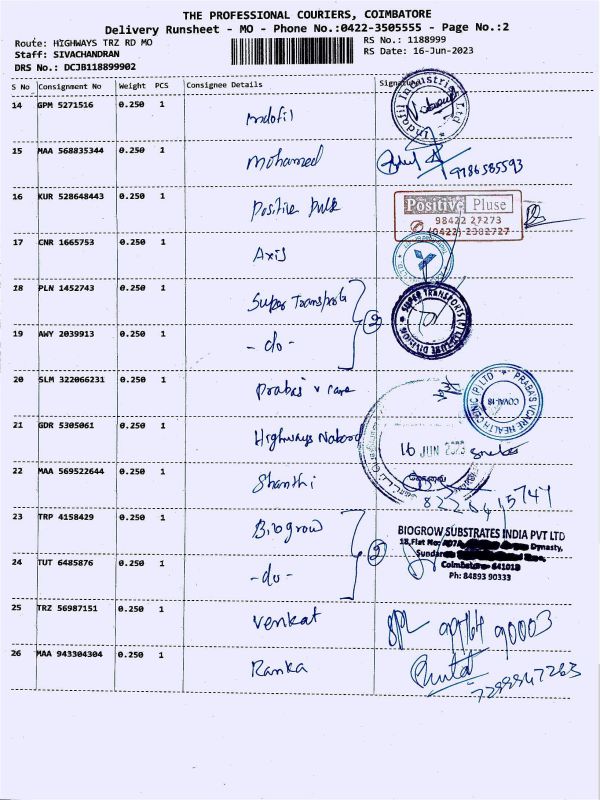 THE PROFESSIONAL COURIERS, COIMBATORE
Delivery Runsheet - MO - Phone No.:0422-3505555 - Page No.:2
Route: HIGHWAYS TRZ RD MO
RS No.: 1188999
Staff: SIVACHANDRAN
RS Date: 16-Jun-2023
DRS No.: DCJB118899902
S No Consignment No Weight PCS Consignee Details
14 GPM 5271516 0.250 1 Indofil
15 MAA 568835344 0.250 1 Mohamed
16 KUR 528648443 0.250 1 Positive pulse
Positive Pluse
98422 27273
(0422) 2382727
17 CNR 1665753 0.250 1 Axis
18 PLN 1452743 0.250 1 Super Transports
19 AWY 2039913 0.250 1 - do -
2
20 SLM 322066231 0.250 1 Prabas v care
PRABA'S VCARE HEALTH CLINIC (P) LTD
21 GDR 5305061 0.250 1 Highways Nabard
16 JUN 2023
22 MAA 569522644 0.250 1 Shanthi
8226415747
23 TRP 4158429 0.250 1 Biogrow
BIOGROW SUBSTRATES INDIA PVT LTD
18,Flat No: Dynasty,
Coimbatore- 641018
Ph: 84893 90333
24 TUT 6485876 0.250 1 - do -
2
25 TRZ 56987151 0.250 1 Venkat
26 MAA 943304304 0.250 1 Ranka